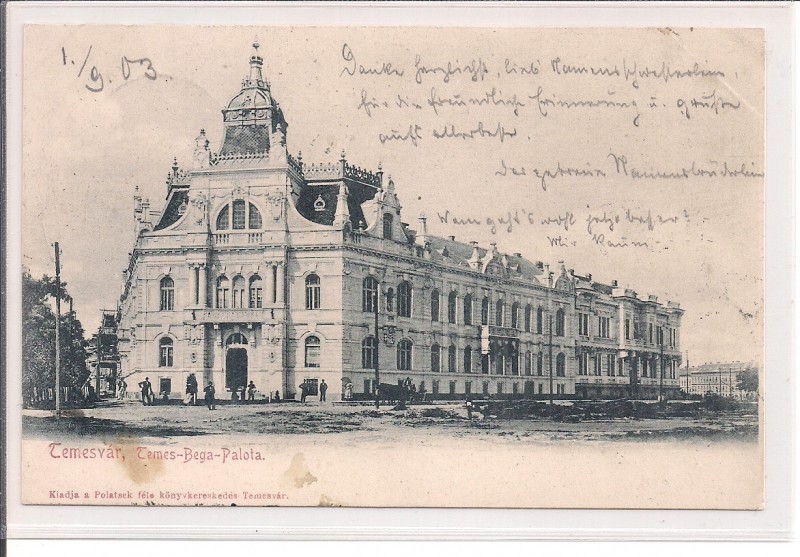 1./9. 03.
Danke herzlichst, lieb Namensschwesterlein,
für die freundliche Erinnerung u. grüße
aufs allerbeste.
Der getreue Namensbrüderlein
Wem geht's wohl jetzt besser?
Mir kaum.
Temesvár, Temes-Bega-Palota.
Kiadja a Polatsek féle könyvkereskedés Temesvár.